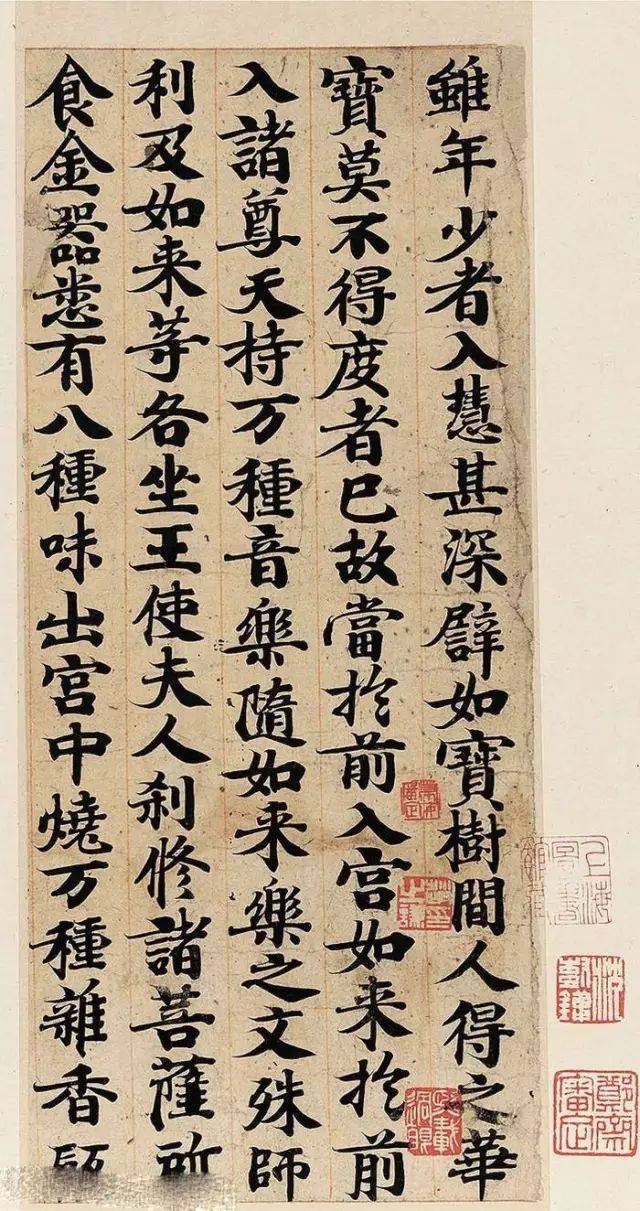 雖年少者入慧甚深譬如寶樹間人得之華
寶莫不得度者已故當扵前入宫如来扵前
入諸尊天持万種音樂隨如来樂之文殊師
利及如来等各坐王使夫人刹修諸菩薩所
食金器悉有八種味出宫中燒万種雜香